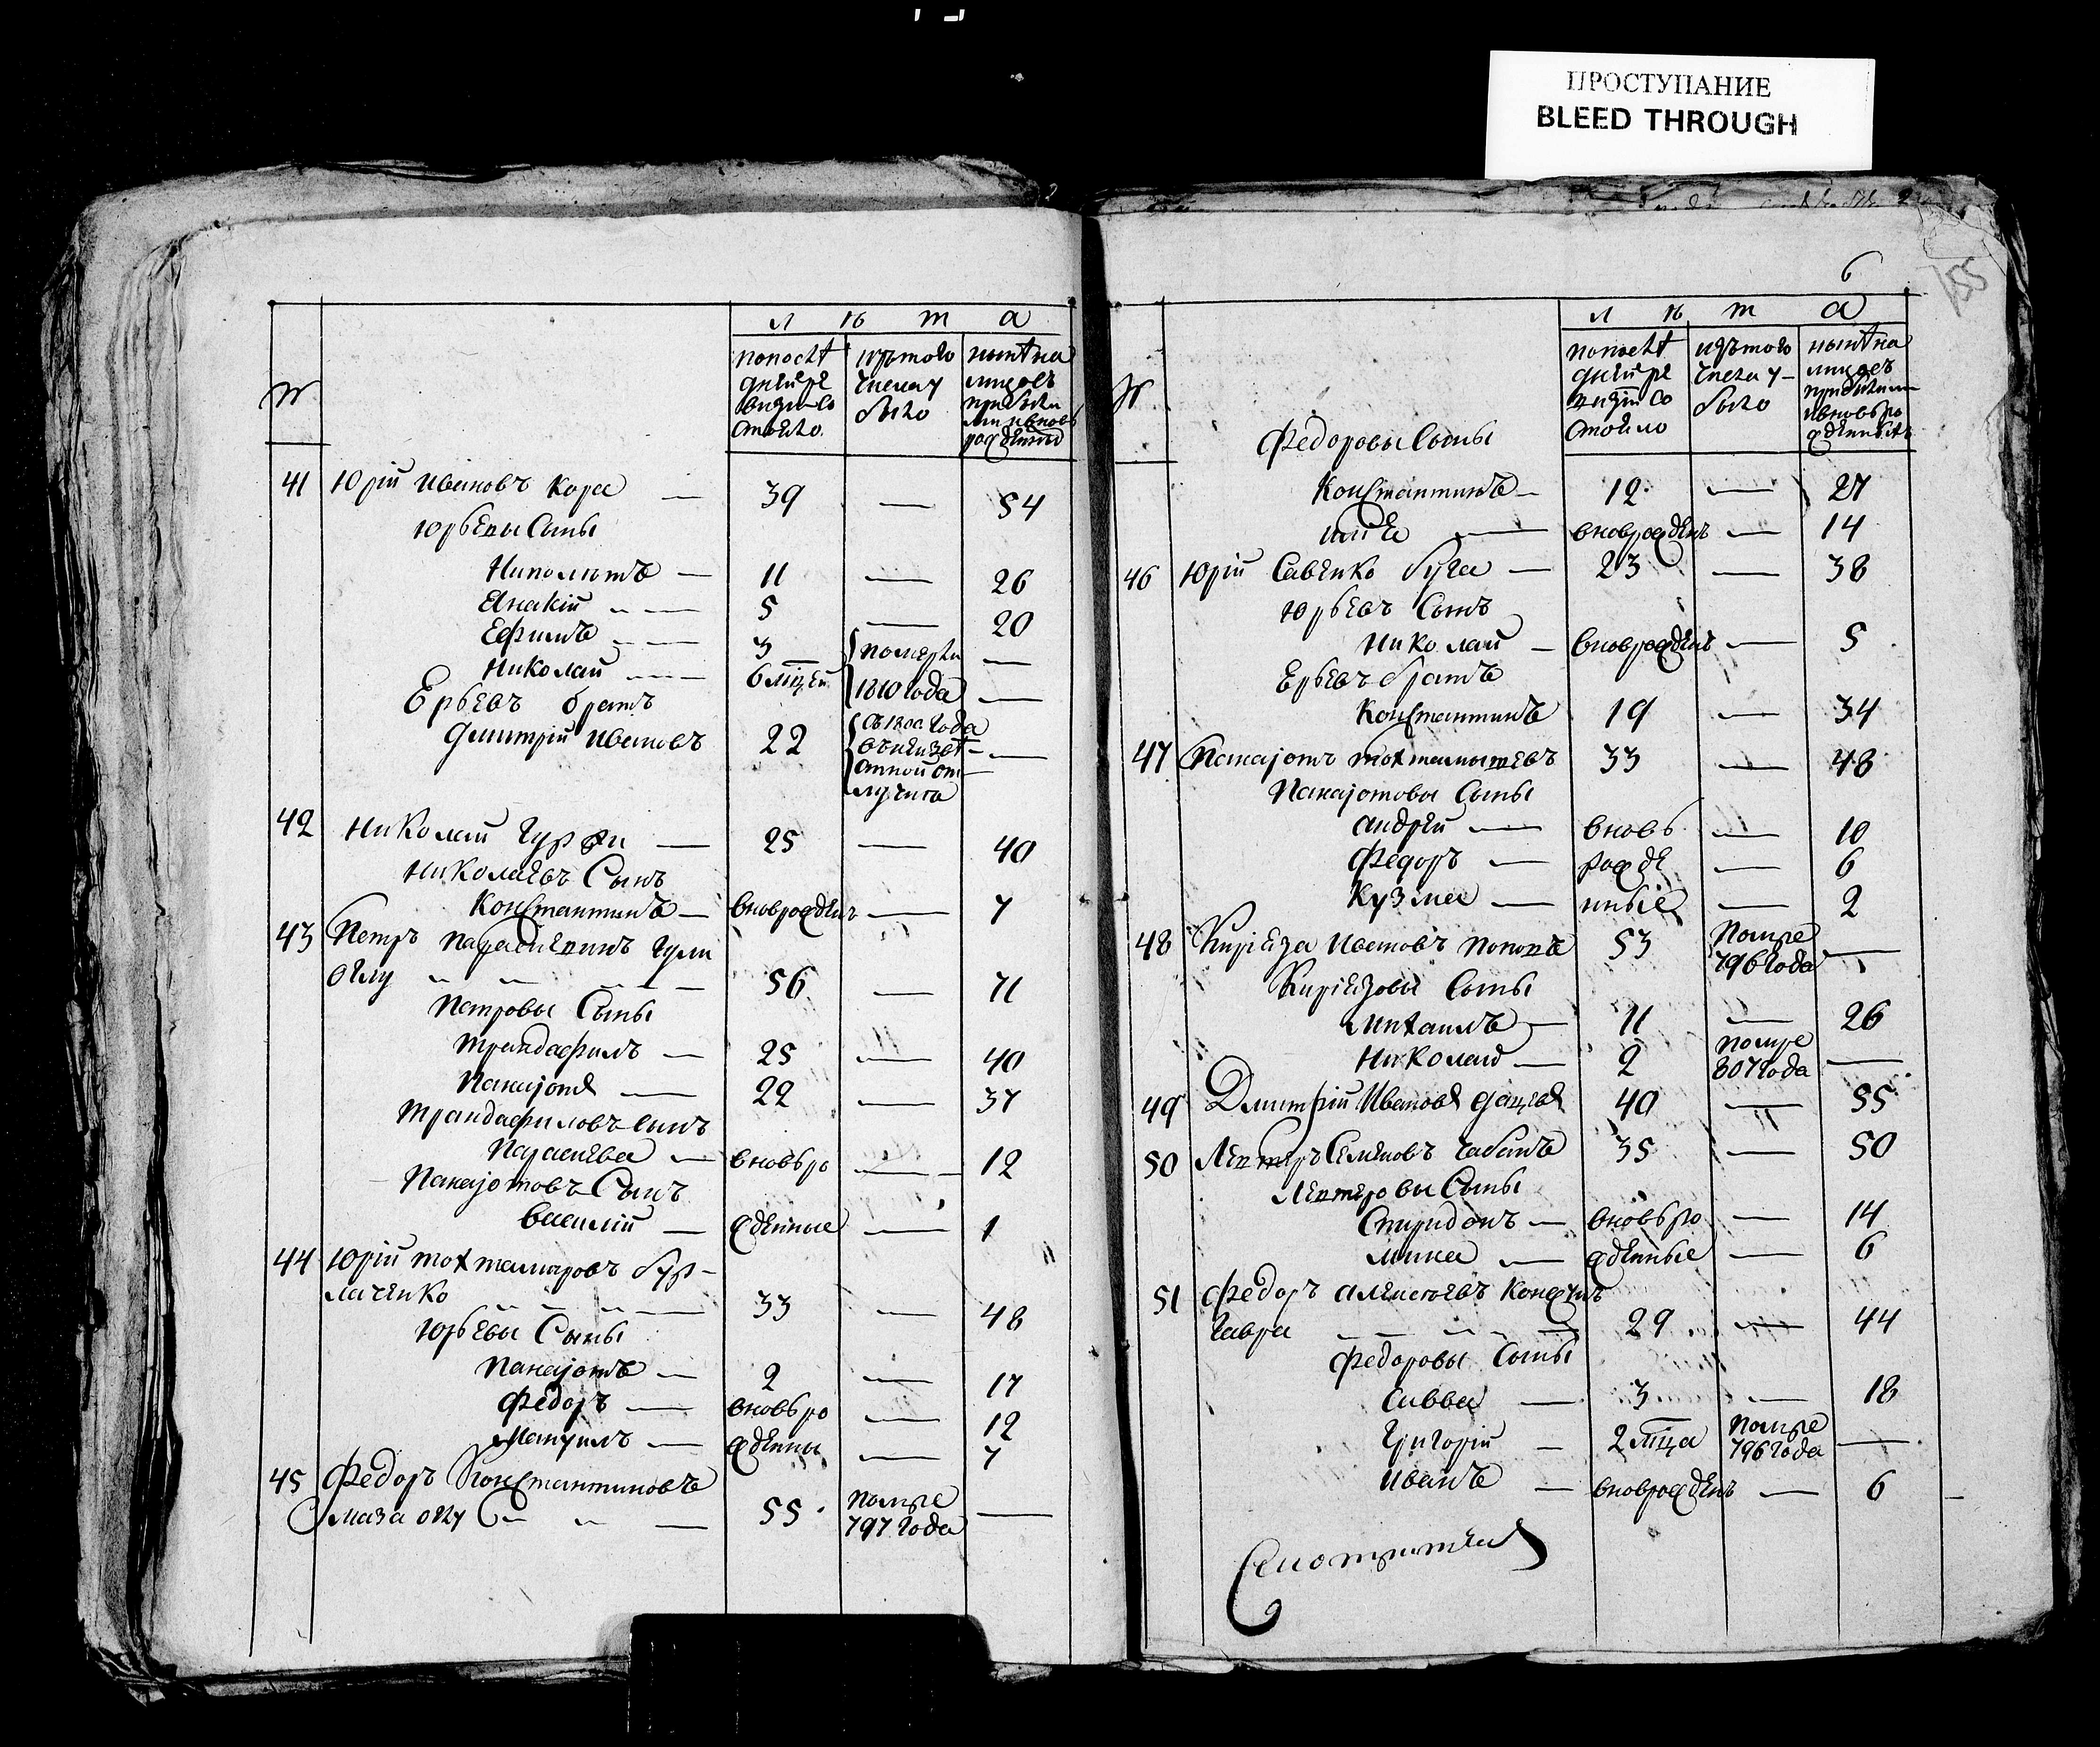 ПРОСТУПАНИЕ
BLEED THROUGH
№
л ѣ т а
по последней ревизии состояло
изъ того числа убыло
ныне на лицо съ прибылыми и вновь рожденны
41 Юрій Ивановъ Кара — 39 — 54
Юрьевы Сыны
Иполитъ — 11 — 26
Анакій — 5 — 20
Ефимъ — 3 померли —
Николай — 6 мцей 1810 года —
Ерьевъ братъ
Дмитрій Ивановъ 22 съ 1800 года въ неизвестной отлучке —
42 Николай Гуржи — 25 — 40
Николаевъ Сынъ
Константинъ — вновърожденъ — 7
43 Петръ Парасневинъ Гули
оглу — 56 — 71
Петровы Сыны
Трандафилъ — 25 — 40
Панаjотъ — 22 — 37
Трандафиловъ сынъ
Параснева — вновьро — 12
Панаjотовъ Сынъ
Василій — жденные — 1
44 Юрій Тохтамировъ Бур-
лаченко — 33 — 48
Юрьевы Сыны
Панаjотъ — 2 — 17
Федоръ — вновьро — 12
Мануилъ — жденны — 7
45 Федоръ Константиновъ
Смаза оглу — 55 помре 797 года —
6
155
№
л ѣ т а
по последней ревизіи состояло
изъ того числа убыло
ныне на лицо съ прибылыми и вновь рожденными
Федоровы Сыны
Константинъ — 12 — 27
Илiя — вноврожденъ — 14
46 Юрій Савенко Буга — 23 — 38
Юрьевъ Сынъ
Николай — вноврожденъ — 5
Ерьевъ братъ
Константинъ 19 — 34
47 Панаjотъ Тохтамышевъ 33 — 48
Панаjотовы Сыны
Андрей — вновь — 10
Федоръ — рожде — 6
Кузма — нные — 2
48 Кирiяза Ивановъ Поповъ 53 помре 796 года —
Кирiязовы Сыны
Михаилъ — 11 — 26
Николай — 2 помре 807 года —
49 Дмитрій Ивановъ Дацевъ 40 — 55
50 Лефтеръ Семеновъ Чабанъ 35 — 50
Лефтеровы Сыны
Спиридонъ — вновьро — 14
Мина — жденные — 6
51 Федоръ Алексеевъ
Гавра — 29 — 44
Федоровы Сыны
Савва — 3 — 18
Григорій — 2 мца помре 796 года —
Иванъ — вноврожденъ — 6